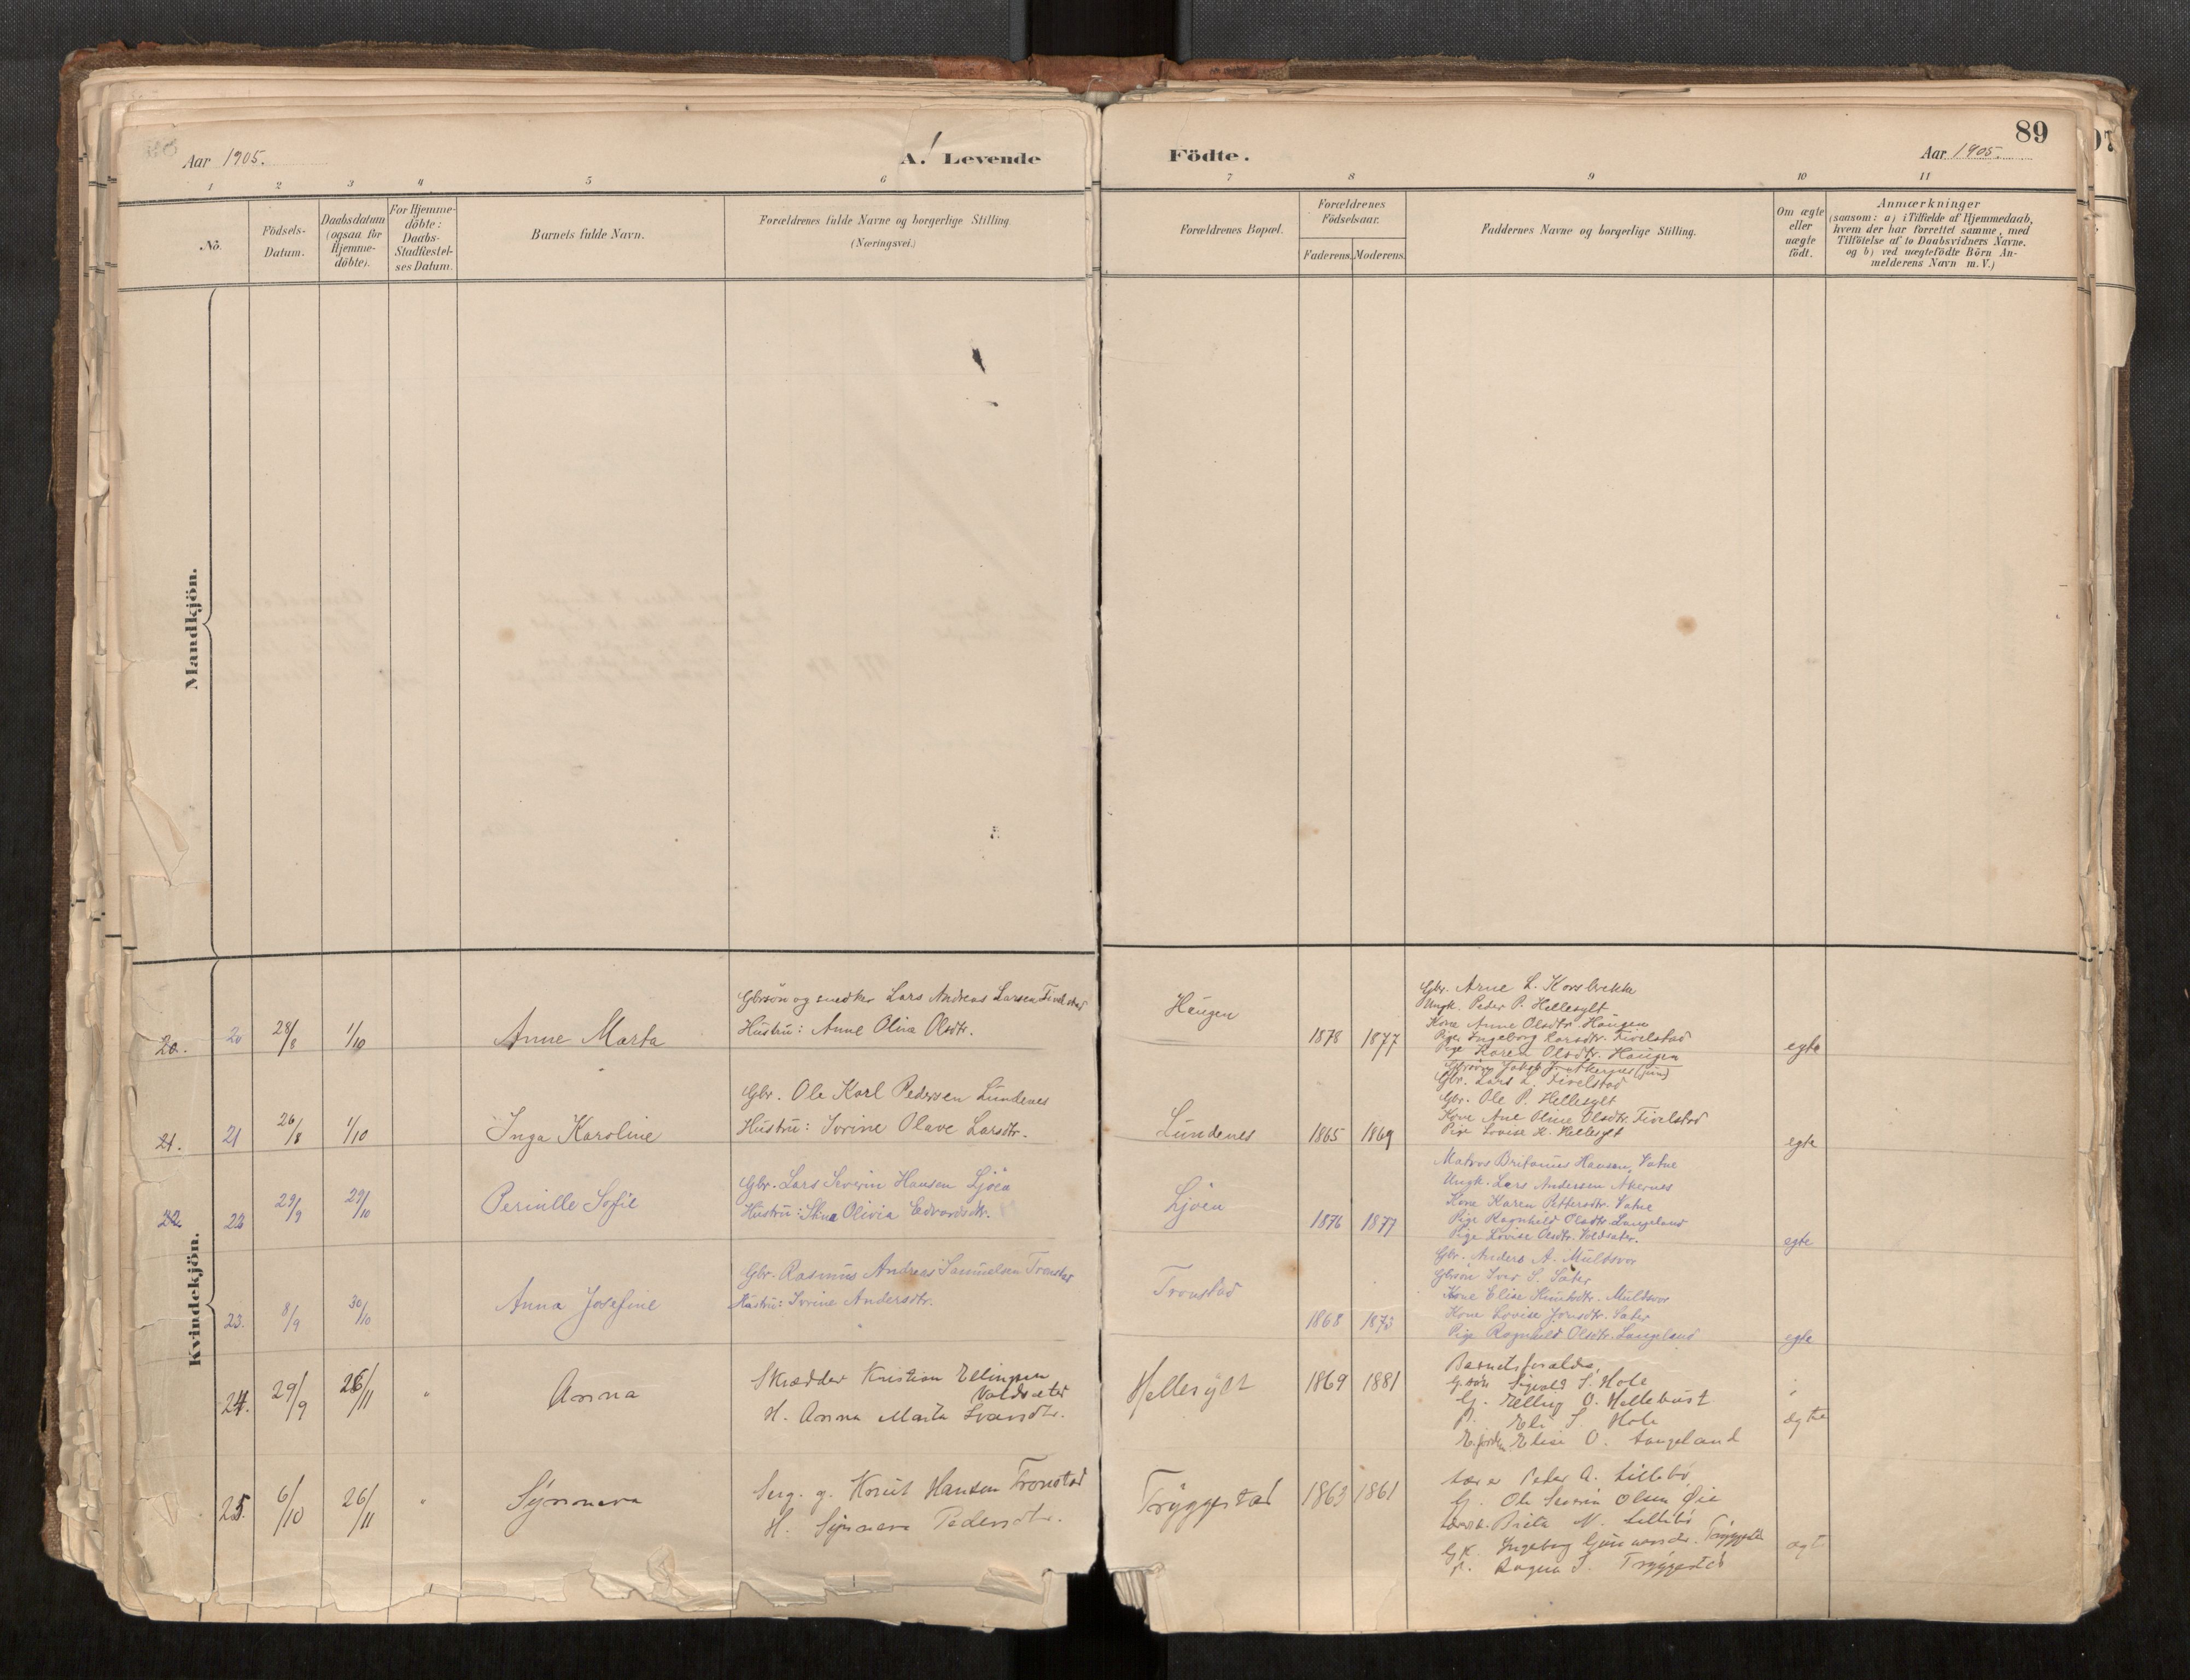 89
Aar 1905.
A. Levende
Födte.
Aar 1905.
1 2 3 4 5 6 7 8 9 10 11
No.
Födsels-
Datum.
Daabsdatum
(ogsaa for
Hjemme-
döbte).
For Hjemme-
döbte:
Daabs-
Stadfæstel-
ses Datum.
Barnets fulde Navn.
Forældrenes fulde Navne og borgerlige Stilling.
(Næringsvei.)
Forældrenes Bopæl.
Forældrenes
Födselsaar.
Faderens. Moderens.
Faddernes Navne og borgerlige Stilling.
Om ægte
eller
uægte
födt.
Anmærkninger
(saasom: a) i Tilfælde af Hjemmedaab,
hvem der har forrettet samme, med
Tilföielse af to Daabsvidners Navne.
og b) ved uægtefödte Börn An-
melderens Navn m.V.)
Mandkjön.
Kvindekjön.
20. 20 28/8 1/10 Anne Marta
Gbrsön og snedker Lars Andreas Larsen Fivelstad
Hustru: Anne Olina Olsdtr.
Haugen
1878 1877
Gbr. Arne L. Korsbrekke
Ungk. Peder P. Hellesylt
Kone Anne Olsdtr. Haugen
Pige Ingeborg Larsdtr. Fivelstad
Pige Karen Olsdtr. Haugen
egte
21. 21 26/8 1/10 Inga Karoline
Gbr. Ole Karl Pedersen Lundenes
Hustru: Ivrine Olave Larsdtr.
Lundenes
1865 1869
Gbr. Lars L. Fivelstad
Gbr. Ole P. Hellesylt
Kone Ane Oline Olsdtr. Fivelstad
Pige Lovise H. Hellesylt
egte
22. 22 29/9 29/10 Pernille Sofie
Gbr. Lars Severin Hansen Ljøen
Hustru: Olivia Edvardsdtr.
Ljøen
1876 1877
Matros Hansen, Vatne
Ungk. Lars Andersen Akernes
Kone Karen Pettersdtr. Vatne
Pige Ragnhild Olsdtr. Langeland
Pige Lovise Olsdtr. Voldsæter.
egte
23. 8/9 30/10 Anna Josefine
Gbr. Rasmus Andreas Samuelsen Tronstad
Hustru: Ivrine Andersdtr.
Tronstad
1868 1873
Gbr. Anders A. Muldsvor
Gbrsön Iver S. Sæter
Kone Elise Knutsdtr. Muldsvor
Kone Lovise Jonsdtr. Sæter
Pige Ragnhild Olsdtr. Langeland
egte
24. 29/9 26/11 " Anna
Skrædder Kristian Ellingsen
Voldsæter
H. Anna Marta Ivarsdtr.
Hellesylt
1869 1881
Barnets forældre,
G.sön Sigvald S. Hole
G. Elling O. Hellebust
p. Eli S. Hole
Elise O. Langeland
ægte
25. 6/10 26/11 " Synneva
Serg. g. Knut Hansen Tronstad
H. Synneva Pedersdtr.
Tryggestad
1863 1861
Lærer Peter A. Lillebö
G. Ole Severin Olsen Øie
Brita N. Lillebö
G.k. Ingeborg Gunnarsdr. Tryggestad
p. Ragna S. Tryggestad
ægt